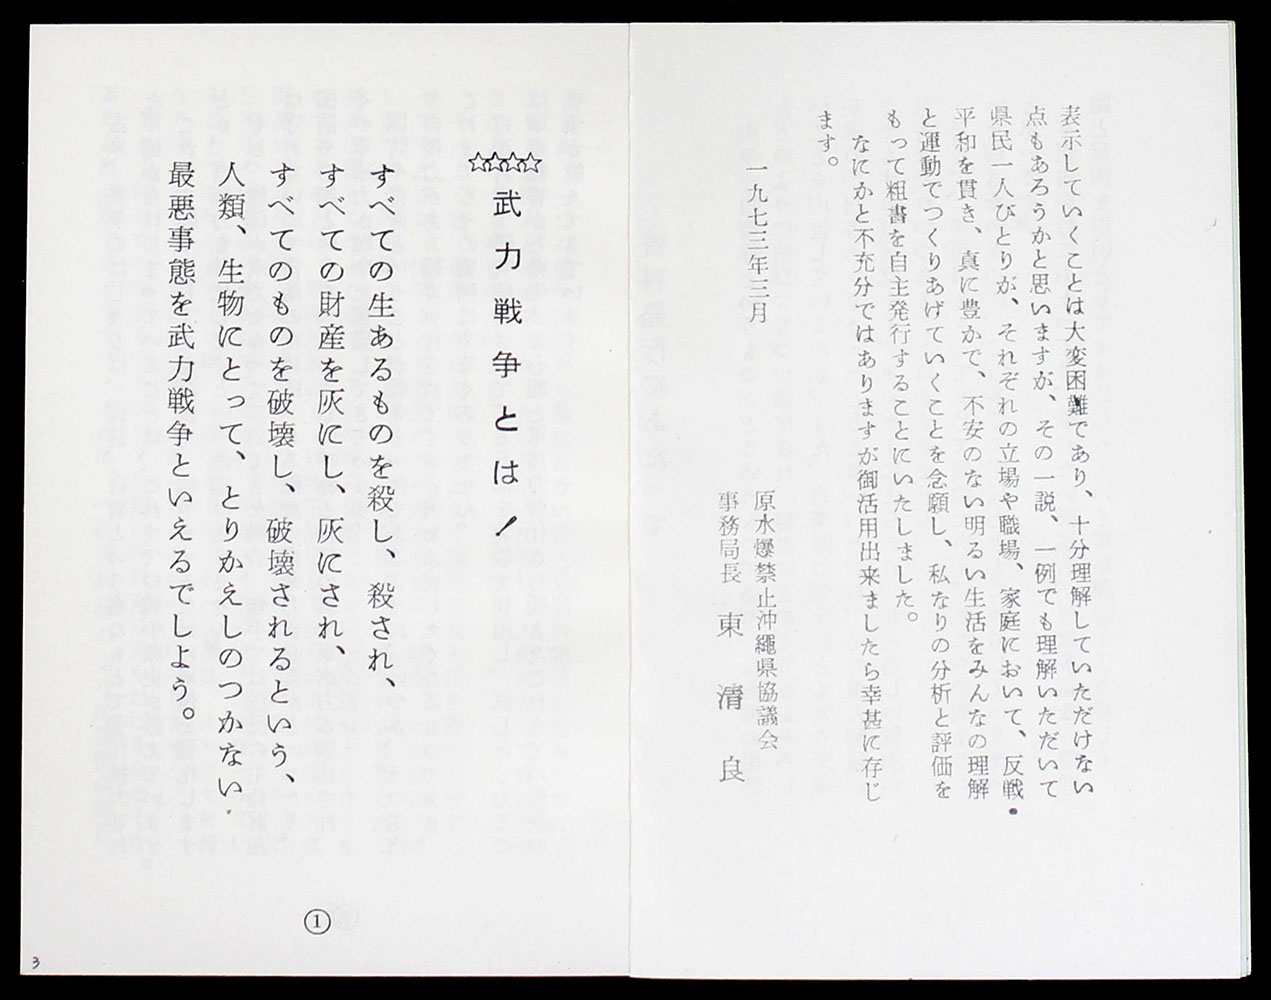 表示していくことは大変困難であり、十分理解していただけない
点もあるうかと思いますが、その一説、一例でも理解いただいて
県民一人びとりが、それぞれの立場や職場、家庭において、反戦・
平和を貫き、真に豊かで、不安のない明るい生活をみんなの理解
と運動でつくりあげていくことを念願し、私なりの分析と評価を
もって粗書を自主発行することにいたしました。
なにかと不充分ではありますが御活用出来ましたら幸甚に存じ
ます。
一九七三年三月
原水爆禁止沖繩県協議会
事務局長 東清良
☆☆☆☆
武力戦争とは!
すべての生あるものを殺し、殺され、
すべての財産を灰にし、灰にされ、
すべてのものを破壊し、破壊されるという、
人類、生物にとって、とりかえしのつかない
最悪事態を武力戦争といえるでしよう。
①
3